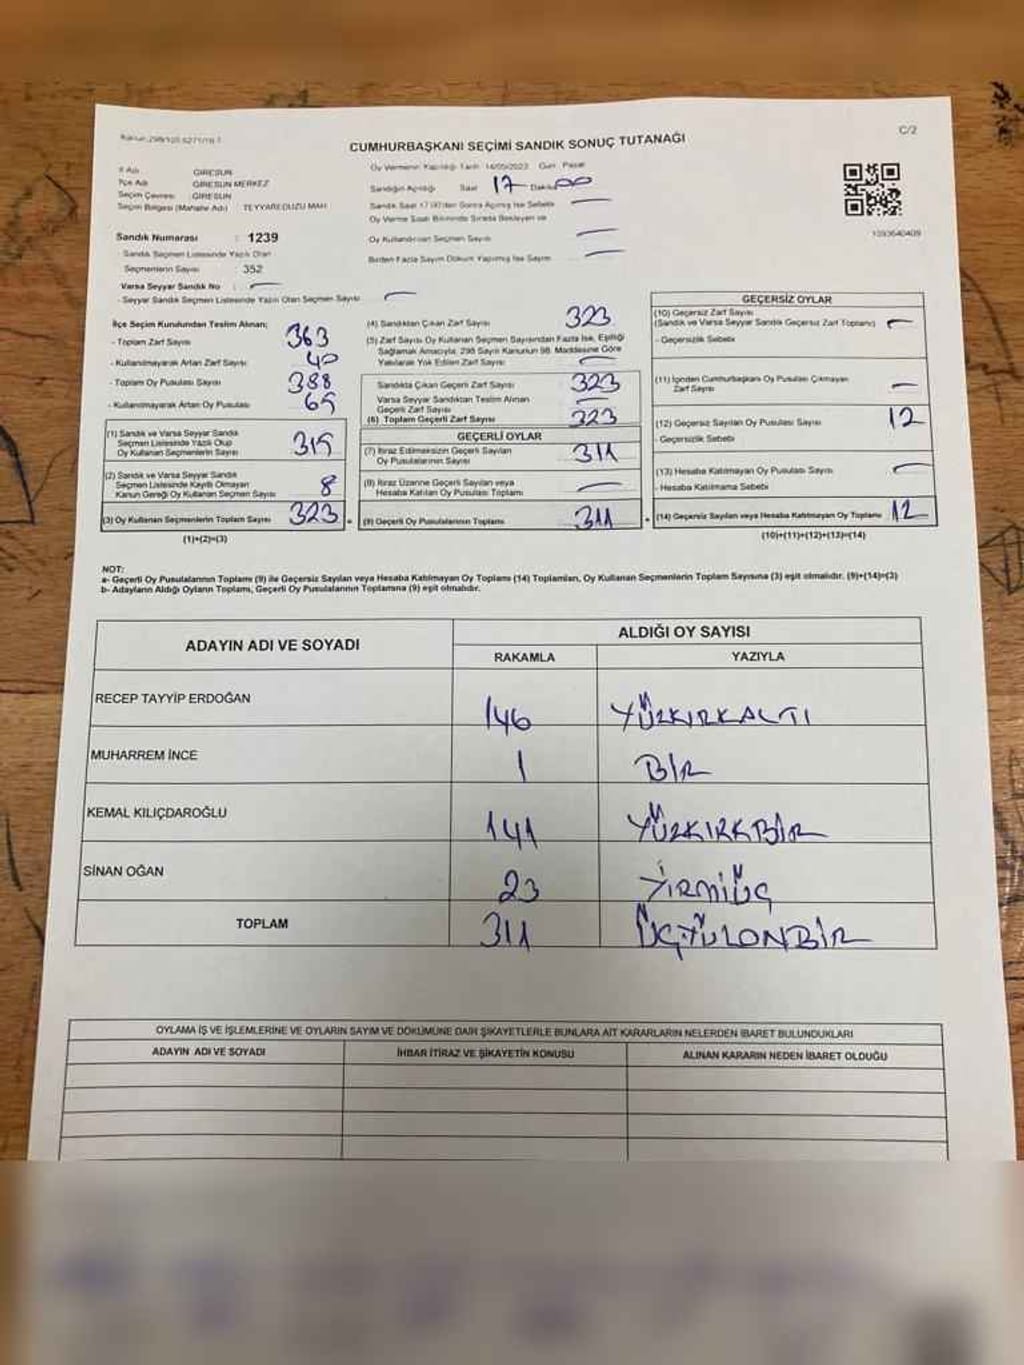 C/2
CUMHURBAŞKANI SEÇİMİ SANDIK SONUÇ TUTANAĞI
İl Adı GİRESUN
İlçe Adı GİRESUN MERKEZ
Seçim Çevresi GİRESUN
Seçim Bölgesi (Mahalle Adı) : TEYYAREDÜZÜ MAH.
Sandık Numarası : 1239
Sandık Seçmen Listesinde Yazılı Olan
Seçmenlerin Sayısı : 352
Varsa Seyyar Sandık No : —
- Seyyar Sandık Seçmen Listesinde Yazılı Olan Seçmen Sayısı —
Oy Vermenin Yapıldığı Tarih: 14/05/2023 Gün: Pazar
Sandığın Açıldığı Saat 17 Dakika 00
Sandık Saat 17:00'den Sonra Açılmış İse Sebebi —
Oy Verme Saati Bitiminde Sırada Bekleyen ve
Oy Kullandırılan Seçmen Sayısı —
Birden Fazla Sayım Döküm Yapılmış İse Sayısı —
1393640409
İlçe Seçim Kurulundan Teslim Alınan;
- Toplam Zarf Sayısı 363
- Kullanılmayarak Artan Zarf Sayısı 40
- Toplam Oy Pusulası Sayısı 388
- Kullanılmayarak Artan Oy Pusulası 65
(1) Sandık ve Varsa Seyyar Sandık
Seçmen Listesinde Yazılı Olup
Oy Kullanan Seçmenlerin Sayısı 315
(2) Sandık ve Varsa Seyyar Sandık
Seçmen Listesinde Kayıtlı Olmayan
Kanun Gereği Oy Kullanan Seçmen Sayısı 8
(3) Oy Kullanan Seçmenlerin Toplam Sayısı 323
(1)+(2)=(3)
(4) Sandıktan Çıkan Zarf Sayısı 323
(5) Zarf Sayısı Oy Kullanan Seçmen Sayısından Fazla İse, Eşitliği
Sağlamak Amacıyla, 298 Sayılı Kanunun 98. Maddesine Göre
Yakılarak Yok Edilen Zarf Sayısı —
Sandıkta Çıkan Geçerli Zarf Sayısı 323
Varsa Seyyar Sandıktan Teslim Alınan
Geçerli Zarf Sayısı —
(6) Toplam Geçerli Zarf Sayısı 323
GEÇERLİ OYLAR
(7) İtiraz Edilmeksizin Geçerli Sayılan
Oy Pusulalarının Sayısı 311
(8) İtiraz Üzerine Geçerli Sayılan veya
Hesaba Katılan Oy Pusulası Toplamı —
(9) Geçerli Oy Pusulalarının Toplamı 311
GEÇERSİZ OYLAR
(10) Geçersiz Zarf Sayısı
(Sandık ve Varsa Seyyar Sandık Geçersiz Zarf Toplamı) —
- Geçersizlik Sebebi
(11) İçinden Cumhurbaşkanı Oy Pusulası Çıkmayan
Zarf Sayısı —
(12) Geçersiz Sayılan Oy Pusulası Sayısı 12
- Geçersizlik Sebebi
(13) Hesaba Katılmayan Oy Pusulası Sayısı —
- Hesaba Katılmama Sebebi
(14) Geçersiz Sayılan veya Hesaba Katılmayan Oy Toplamı 12
(10)+(11)+(12)+(13)=(14)
NOT:
a- Geçerli Oy Pusulalarının Toplamı (9) ile Geçersiz Sayılan veya Hesaba Katılmayan Oy Toplamı (14) Toplamları, Oy Kullanan Seçmenlerin Toplam Sayısına (3) eşit olmalıdır. (9)+(14)=(3)
b- Adayların Aldığı Oyların Toplamı, Geçerli Oy Pusulalarının Toplamına (9) eşit olmalıdır.
ADAYIN ADI VE SOYADI ALDIĞI OY SAYISI
RAKAMLA YAZIYLA
RECEP TAYYİP ERDOĞAN 146 YÜZKIRKALTI
MUHARREM İNCE 1 BİR
KEMAL KILIÇDAROĞLU 141 YÜZKIRKBİR
SİNAN OĞAN 23 YİRMİÜÇ
TOPLAM 311 ÜÇYÜZONBİR
OYLAMA İŞ VE İŞLEMLERİNE VE OYLARIN SAYIM VE DÖKÜMÜNE DAİR ŞİKAYETLERLE BUNLARA AİT KARARLARIN NELERDEN İBARET BULUNDUKLARI
ADAYIN ADI VE SOYADI İHBAR İTİRAZ VE ŞİKAYETİN KONUSU ALINAN KARARIN NEDEN İBARET OLDUĞU